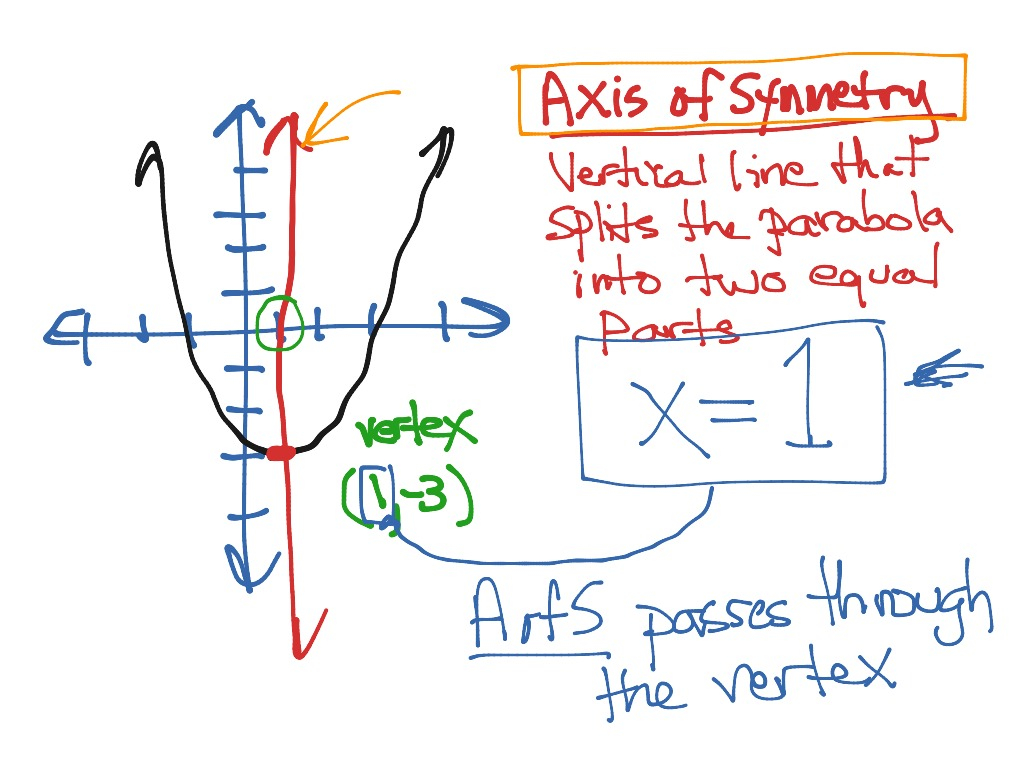 Axis of Symmetry
Vertical line that
splits the parabola
into two equal
Parts
x = 1
vertex
(1, -3)
AofS passes through
the vertex